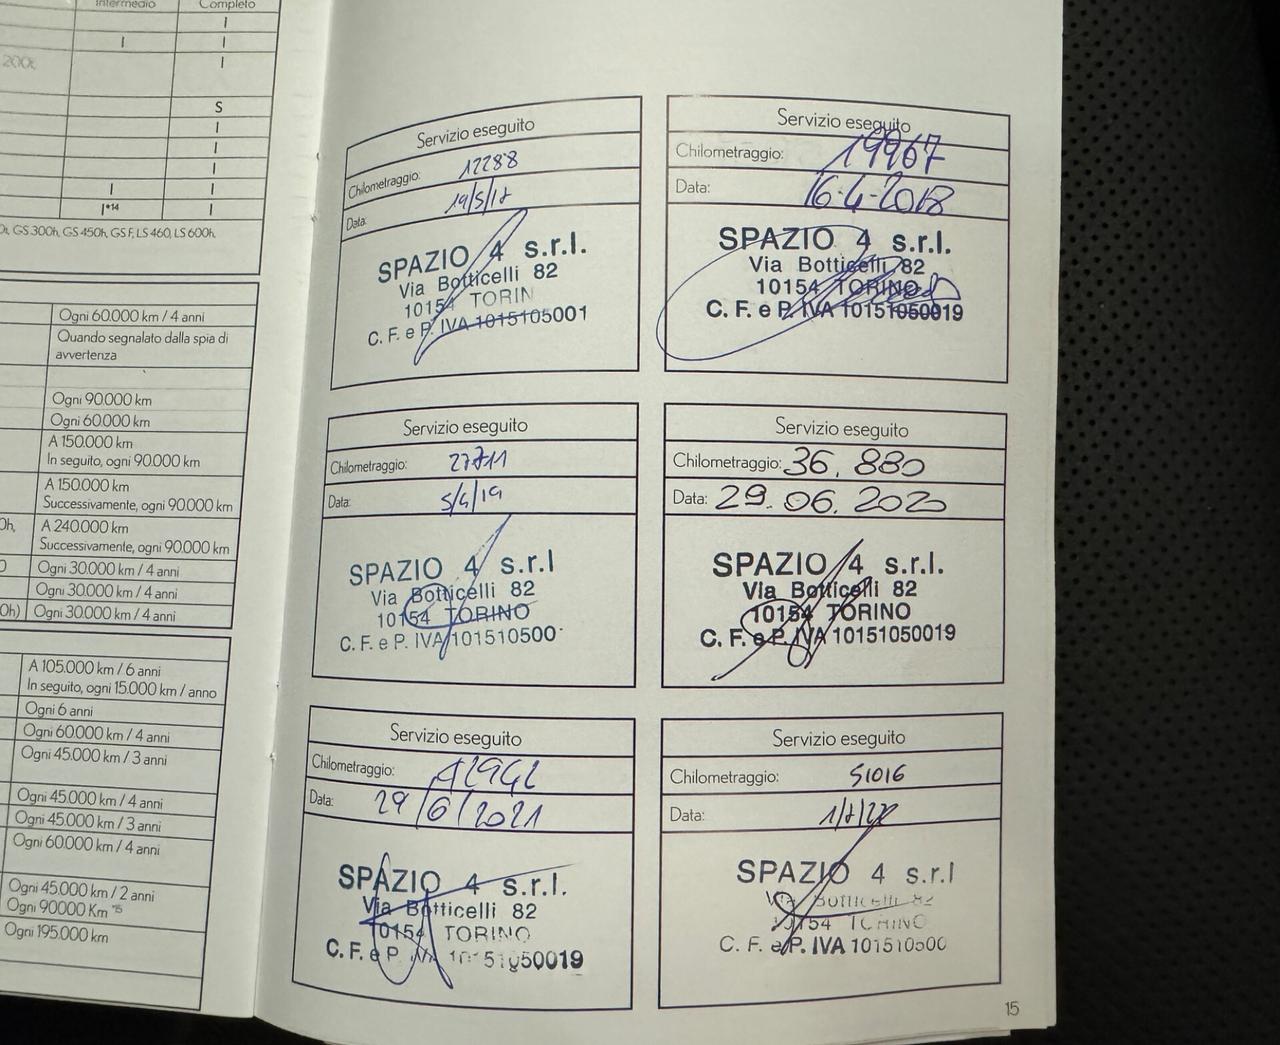 Intermedio Completo
I
I I
200t, I
S
I
I
I
I I
I*14 I
GS 300h, GS 450h, GS F, LS 460, LS 600h.
Ogni 60.000 km / 4 anni
Quando segnalato dalla spia di
avvertenza
Ogni 90.000 km
Ogni 60.000 km
A 150.000 km
In seguito, ogni 90.000 km
A 150.000 km
Successivamente, ogni 90.000 km
A 240.000 km
Successivamente, ogni 90.000 km
Ogni 30.000 km / 4 anni
Ogni 30.000 km / 4 anni
Ogni 30.000 km / 4 anni
A 105.000 km / 6 anni
In seguito, ogni 15.000 km / anno
Ogni 6 anni
Ogni 60.000 km / 4 anni
Ogni 45.000 km / 3 anni
Ogni 45.000 km / 4 anni
Ogni 45.000 km / 3 anni
Ogni 60.000 km / 4 anni
Ogni 45.000 km / 2 anni
Ogni 90000 Km *15
Ogni 195.000 km
Servizio eseguito
Chilometraggio: 12288
Data: 19/5/17
SPAZIO 4 s.r.l.
Via Botticelli 82
10154 TORIN
C. F. e P. IVA 1015105001
Servizio eseguito
Chilometraggio: 19967
Data: 16-4-2018
SPAZIO 4 s.r.l.
Via Botticelli 82
10154 TORINO
C. F. e P. IVA 10151050019
Servizio eseguito
Chilometraggio: 27711
Data: 5/4/19
SPAZIO 4 s.r.l
Via Botticelli 82
10154 TORINO
C. F. e P. IVA 101510500
Servizio eseguito
Chilometraggio: 36.880
Data: 29.06.2020
SPAZIO 4 s.r.l.
Via Botticelli 82
10154 TORINO
C. F. e P. IVA 10151050019
Servizio eseguito
Chilometraggio: 42942
Data: 29/6/2021
SPAZIO 4 s.r.l.
Via Botticelli 82
10154 TORINO
C. F. e P. IVA 10151050019
Servizio eseguito
Chilometraggio: 51016
Data: 1/7/22
SPAZIO 4 s.r.l
Via Botticelli 82
10154 TORINO
C. F. e P. IVA 101510500
15